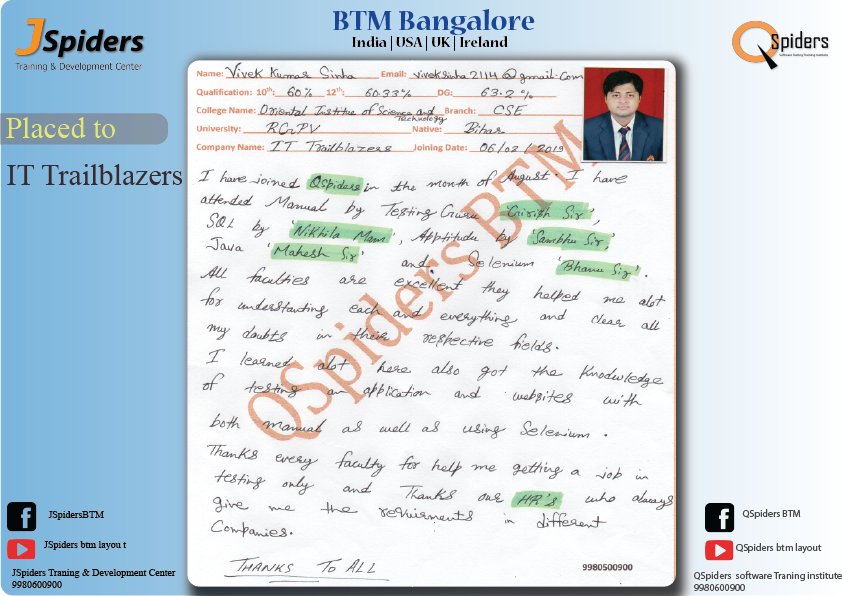 BTM Bangalore
India | USA | UK | Ireland
JSpiders
Training & Development Center
QSpiders
Software Testing Training Institute
Placed to
IT Trailblazers
Name: Vivek Kumar Sinha Email: viveksinha2114@gmail.com
Qualification: 10th: 60% 12th: 60.33% DG: 63.2%
College Name: Oriental Institute of Science and Technology Branch: CSE
University: RGPV Native: Bihar
Company Name: IT Trailblazers Joining Date: 06/02/2019
I have joined QSpiders in the month of August. I have
attended Manual by Testing Guru 'Girish Sir',
SQL by 'Nikhila Mam', Apptitude by 'Sambhu Sir',
Java 'Mahesh Sir' and Selenium 'Bhanu Sir'.
All faculties are excellent they helped me alot
for understanding each and everything and clear all
my doubts in their respective fields.
I learned alot here also got the Knodwledge
of testing an application and websites with
both manual as well as using Selenium.
Thanks every faculty for help me getting a job in
testing only and Thanks our HR's who always
give me the requirments in different
Companies.
THANKS TO ALL
9980500900
QSpiders BTM
JSpidersBTM
JSpiders btm layou t
JSpiders Traning & Development Center
9980600900
QSpiders BTM
QSpiders btm layout
QSpiders software Traning institute
9980600900